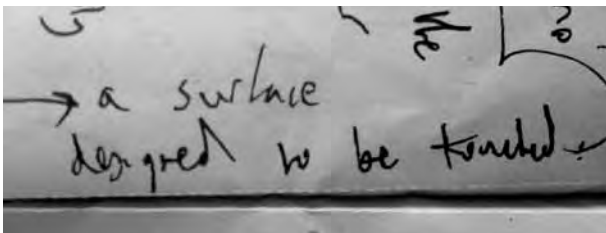 → a surface
designed to be touched.